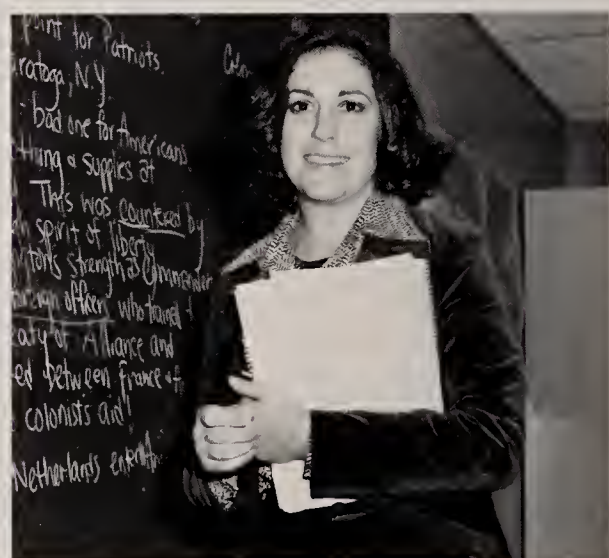 point for Patriots.
ratoga, N.Y.
- bad one for Americans.
thing & supplies at
This was countered by
spirit of liberty
strength as Commander
officer, who trained
aty of Alliance and
ed between France &
colonists aid!
Netherlands